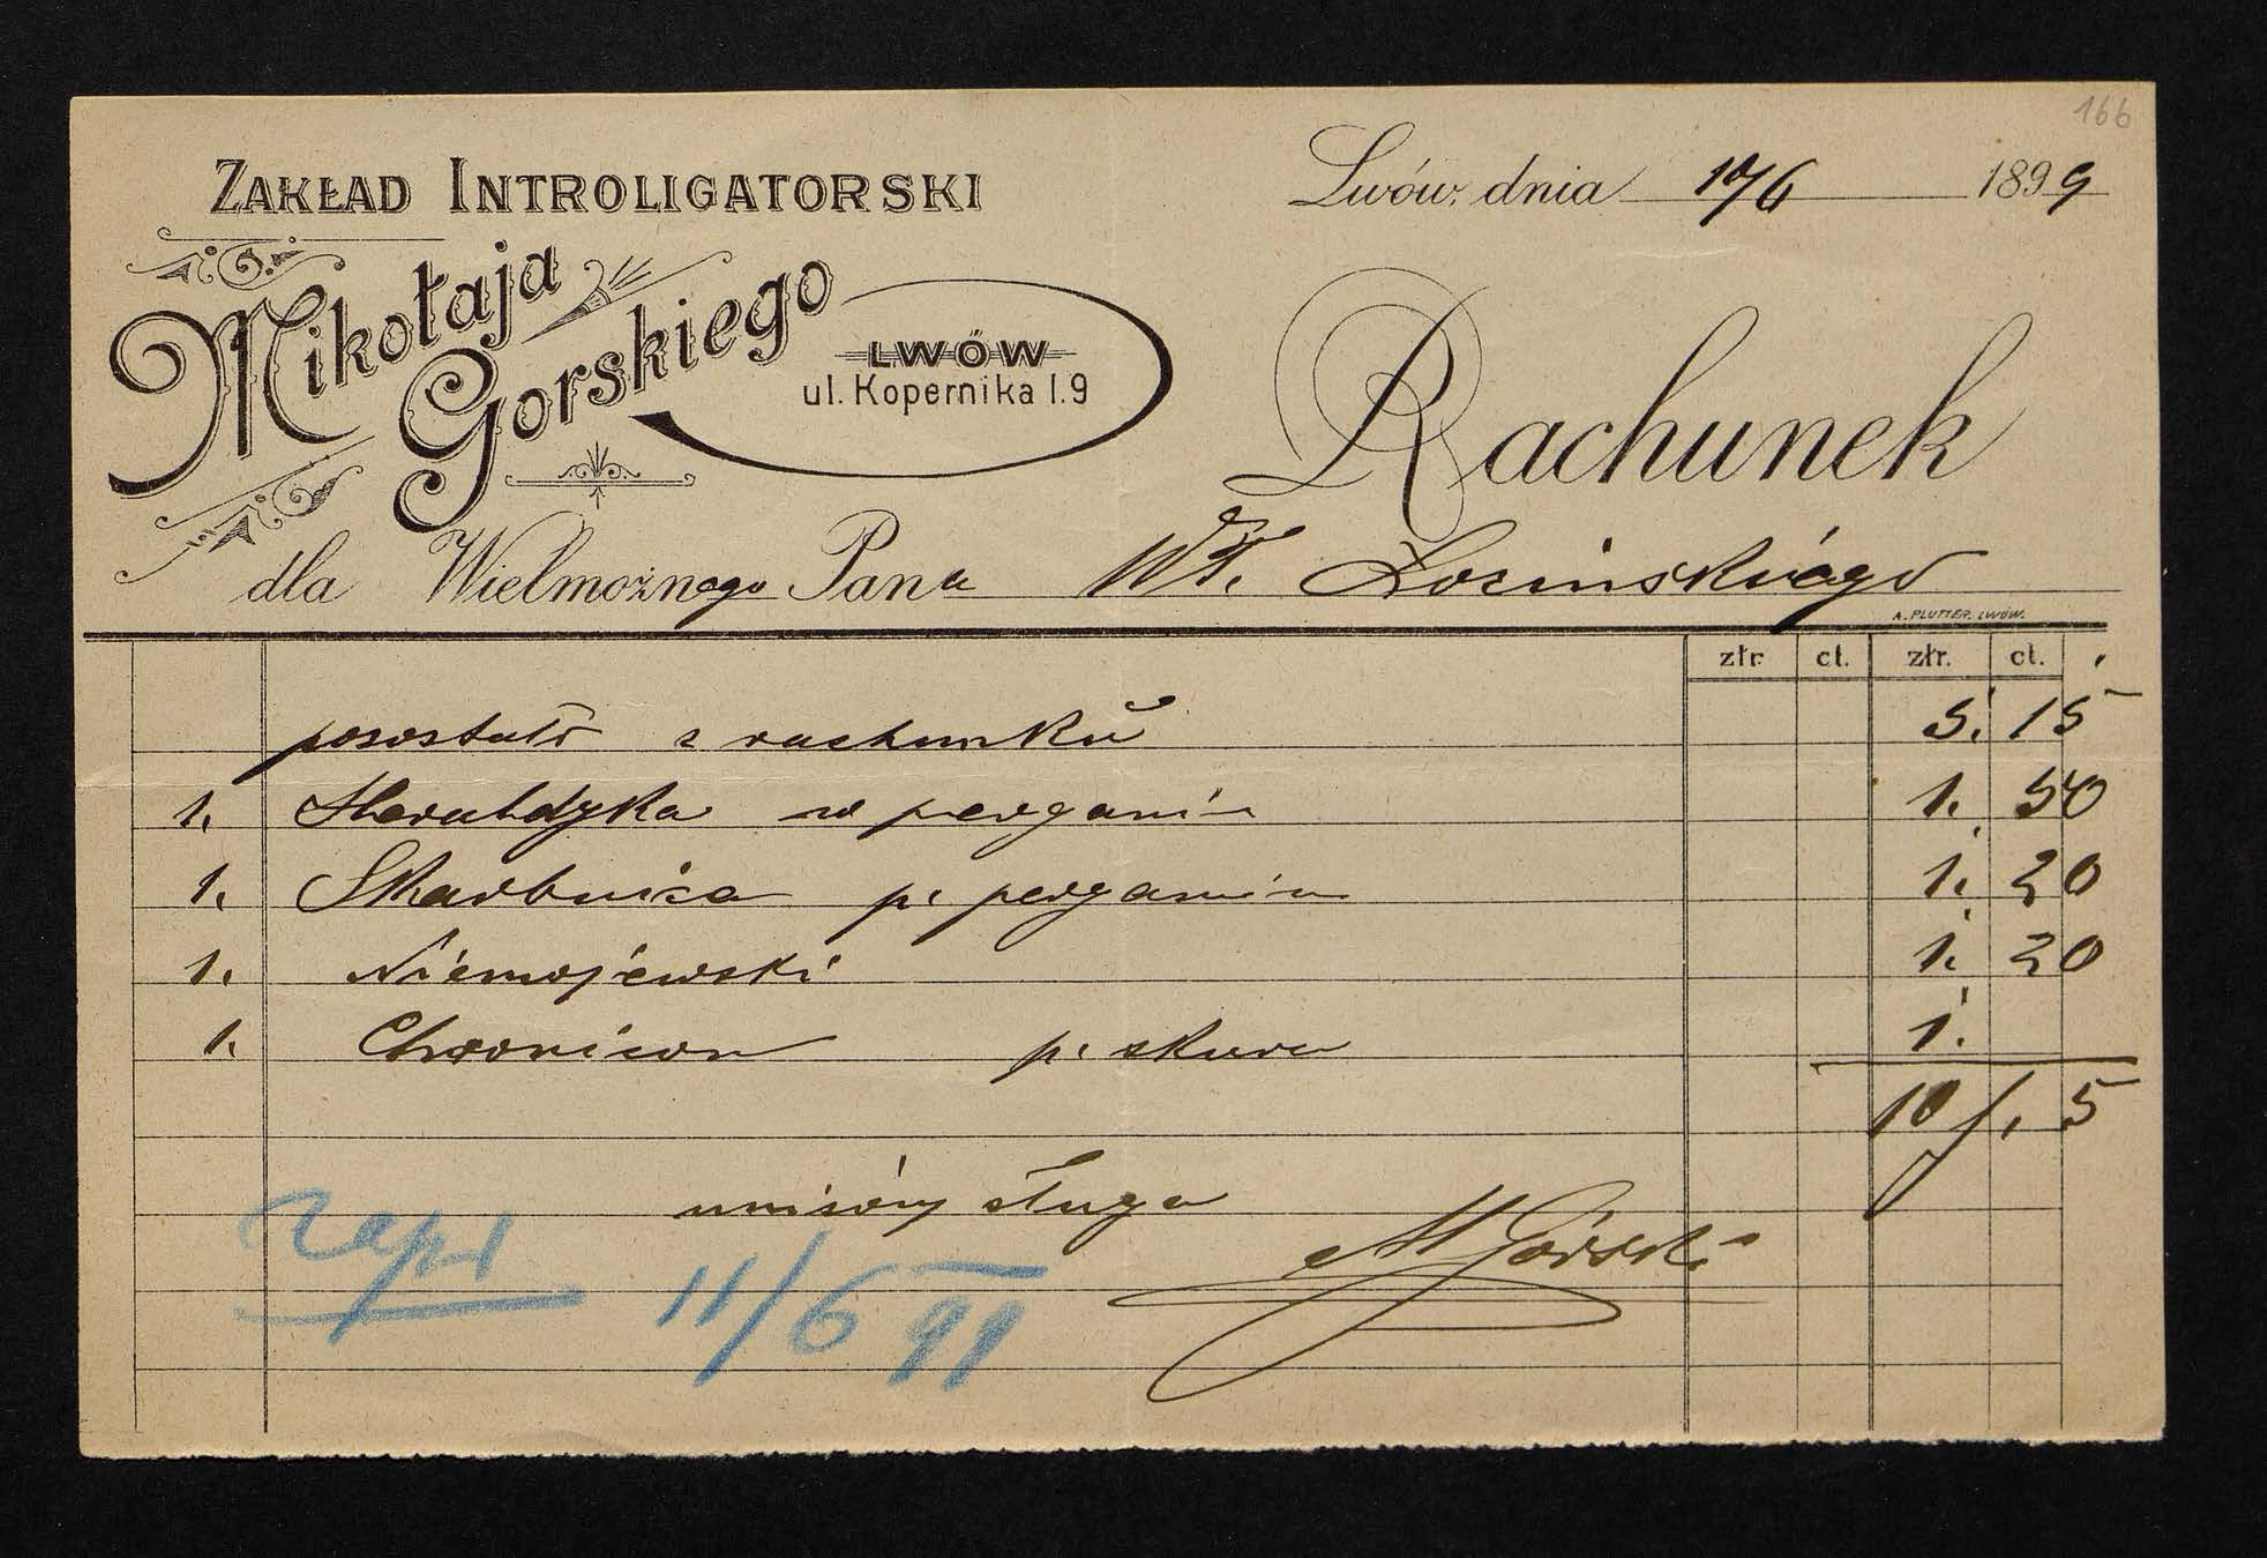 166
ZAKŁAD INTROLIGATORSKI
Mikołaja
Gorskiego
LWÓW
ul. Kopernika l. 9
Lwów, dnia 10/6 1899
Rachunek
dla Wielmożnego Pana Wł. Łozinskiego
A. PLUTTER. LWÓW.
złr. ct. złr. ct.
pozostało z rachunku 5. 15
1. Heraldyka w pergamin 1. 50
1. Skarbnica p. pergamin 1. 20
1. Niemojewski 1. 20
1. Chronicon p. skura 1.
10 f. 5
uniżony sługa
M Górski
zapł
11/6 99